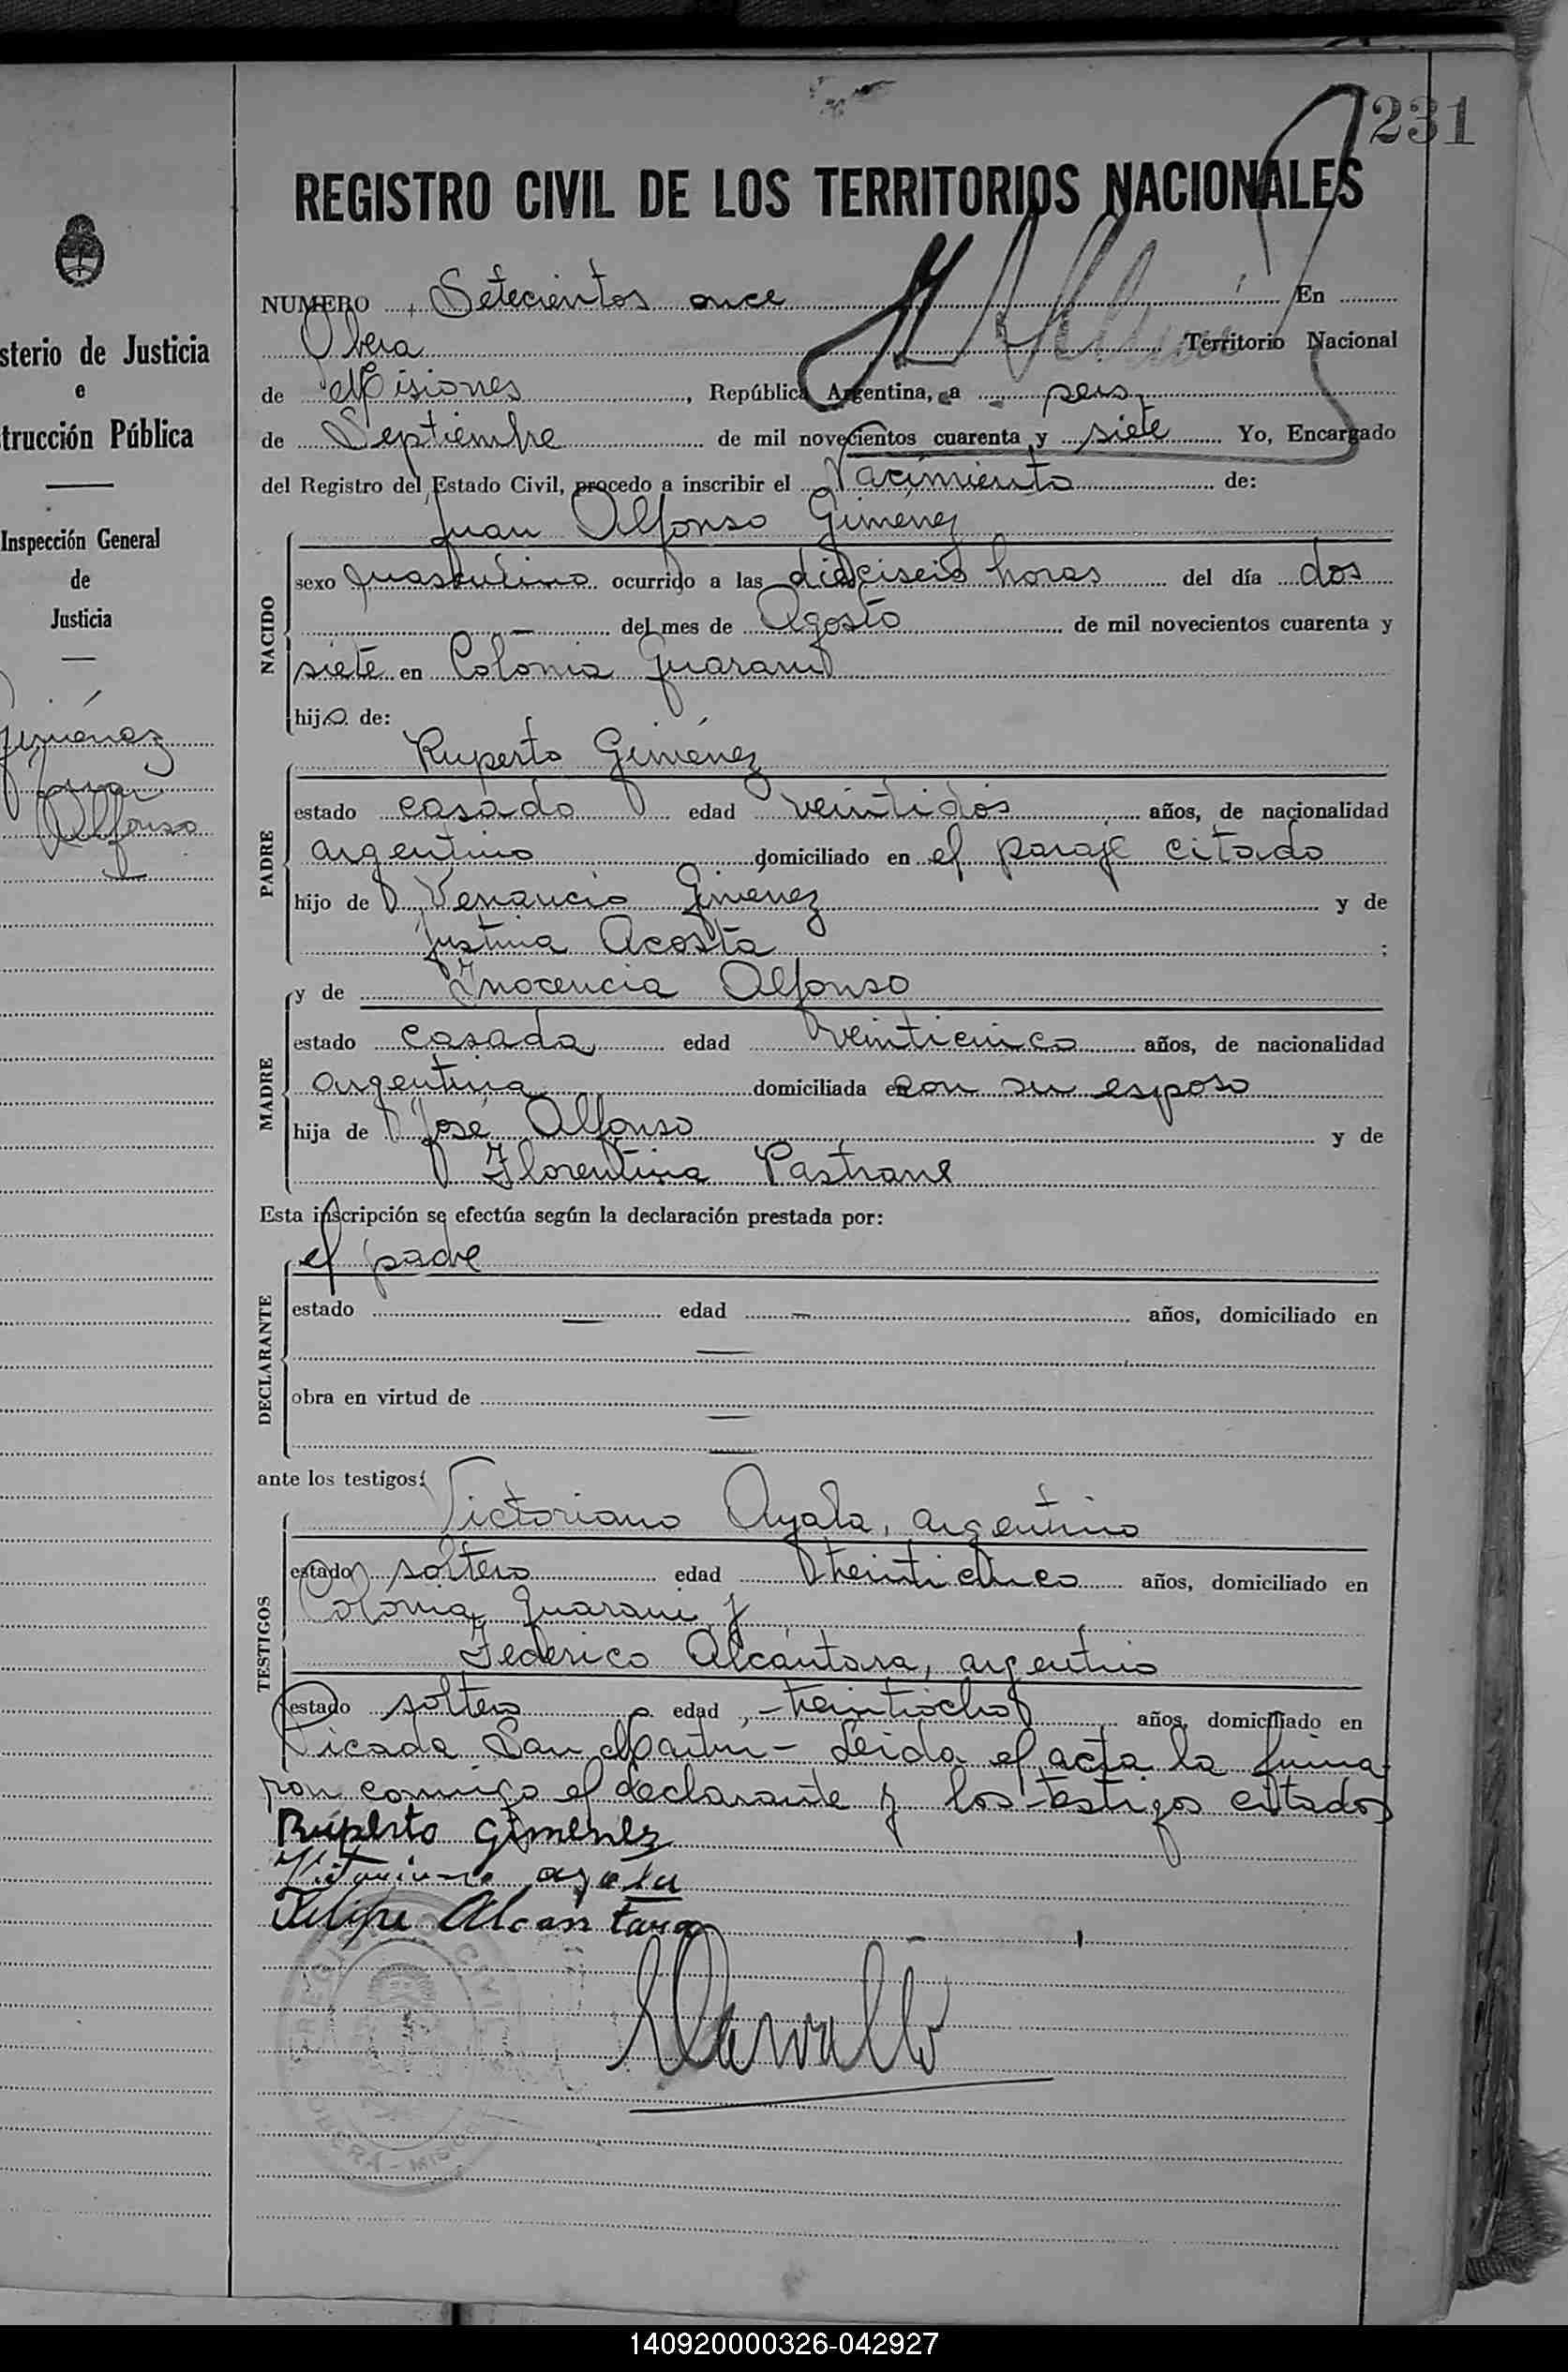 231
REGISTRO CIVIL DE LOS TERRITORIOS NACIONALES
sterio de Justicia
e
trucción Pública
Inspección General
de
Justicia
Giménez
Juan
Alfonso
NUMERO Setecientos once En
Obera Territorio Nacional
de Misiones, República Argentina, a seis
de Septiembre de mil novecientos cuarenta y siete Yo, Encargado
del Registro del Estado Civil, procedo a inscribir el Nacimiento de:
Juan Alfonso Gimenez
NACIDO
sexo masculino ocurrido a las dieciseis horas del día dos
— del mes de Agosto de mil novecientos cuarenta y
siete en Colonia Guaraní
hijo de:
Ruperto Giménez
PADRE
estado casado edad veintidos años, de nacionalidad
argentino domiciliado en el paraje citado
hijo de Venancio Gimenez y de
Justina Acosta ;
y de Inocencia Alfonso
MADRE
estado casada edad veinticinco años, de nacionalidad
argentina domiciliada en con su esposo
hija de José Alfonso y de
Florentina Pastrane
Esta inscripción se efectúa según la declaración prestada por:
el padre
DECLARANTE
estado — edad — años, domiciliado en
—
obra en virtud de —
—
ante los testigos:
Victoriano Ayala, argentino
TESTIGOS
estado soltero edad años, domiciliado en
Colonia Guarani y
Federico Alcántara, argentino
estado soltero edad treintiocho años, domiciliado en
Picada San Martin - Leida el acta la firma-
ron conmigo el declarante y los testigos citados
Ruperto Gimenez
Victoriano ayala
Felipe Alcantara
REGISTRO CIVIL
OBERA - MISIONES
140920000326-042927